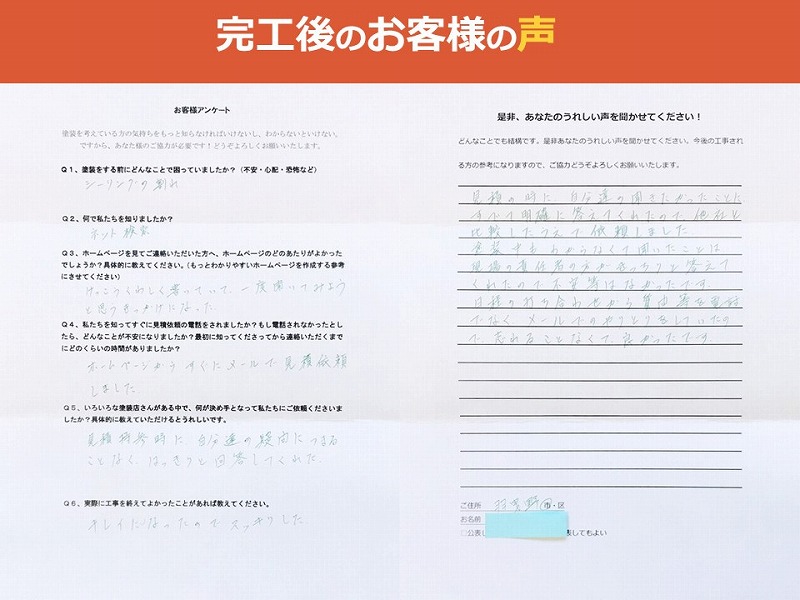 完工後のお客様の声
お客様アンケート
塗装を考えている方の気持ちをもっと知らなければいけないし、わからないといけない。
ですから、あなた様のご協力が必要です！どうぞよろしくお願いいたします。
Q１、塗装をする前にどんなことで困っていましたか？（不安・心配・恐怖など）
シーリングの割れ
Q２、何で私たちを知りましたか？
ネット検索
Q３、ホームページを見てご連絡いただいた方へ、ホームページのどのあたりがよかった
でしょうか？具体的に教えてください。（もっとわかりやすいホームページを作成する参考
にさせてください）
けっこうくわしく書いていて、一度聞いてみよう
と思うきっかけになった
Q４、私たちを知ってすぐに見積依頼の電話をされましたか？もし電話されなかったとし
たら、どんなことが不安になりましたか？最初に知ってくださってから連絡いただくまで
にどのくらいの時間がありましたか？
ホームページからすぐにメールで見積依頼
しました
Q５、いろいろな塗装店さんがある中で、何が決め手となって私たちにご依頼くださいま
したか？具体的に教えていただけるとうれしいです。
見積持参時に、自分達の疑問につまる
ことなく、はっきりと回答してくれた
Q６、実際に工事を終えてよかったことがあれば教えてください。
キレイになったのでスッキリした
是非、あなたのうれしい声を聞かせてください！
どんなことでも結構です。是非あなたのうれしい声を聞かせてください。今後の工事され
る方の参考になりますので、ご協力どうぞよろしくお願いいたします。
見積の時に、自分達の聞きたかったことに
すべて明確に答えてくれたので他社と
比較したうえで依頼しました。
塗装中もわからなくて聞いたことは
現場の責任者の方がきっちりと答えて
くれたので不安等はなかったです。
日程の打ち合わせから質問等を電話
でなくメールでのやりとりをしていたの
で、忘れることなくて良かったです。
ご住所 羽曳野市・区
お名前
□公表し 表してもよい